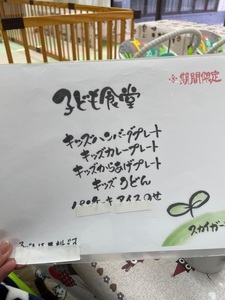 ※期間限定
子ども食堂
キッズハンバーグプレート
キッズカレープレート
キッズからあげプレート
キッズうどん
スカイガー